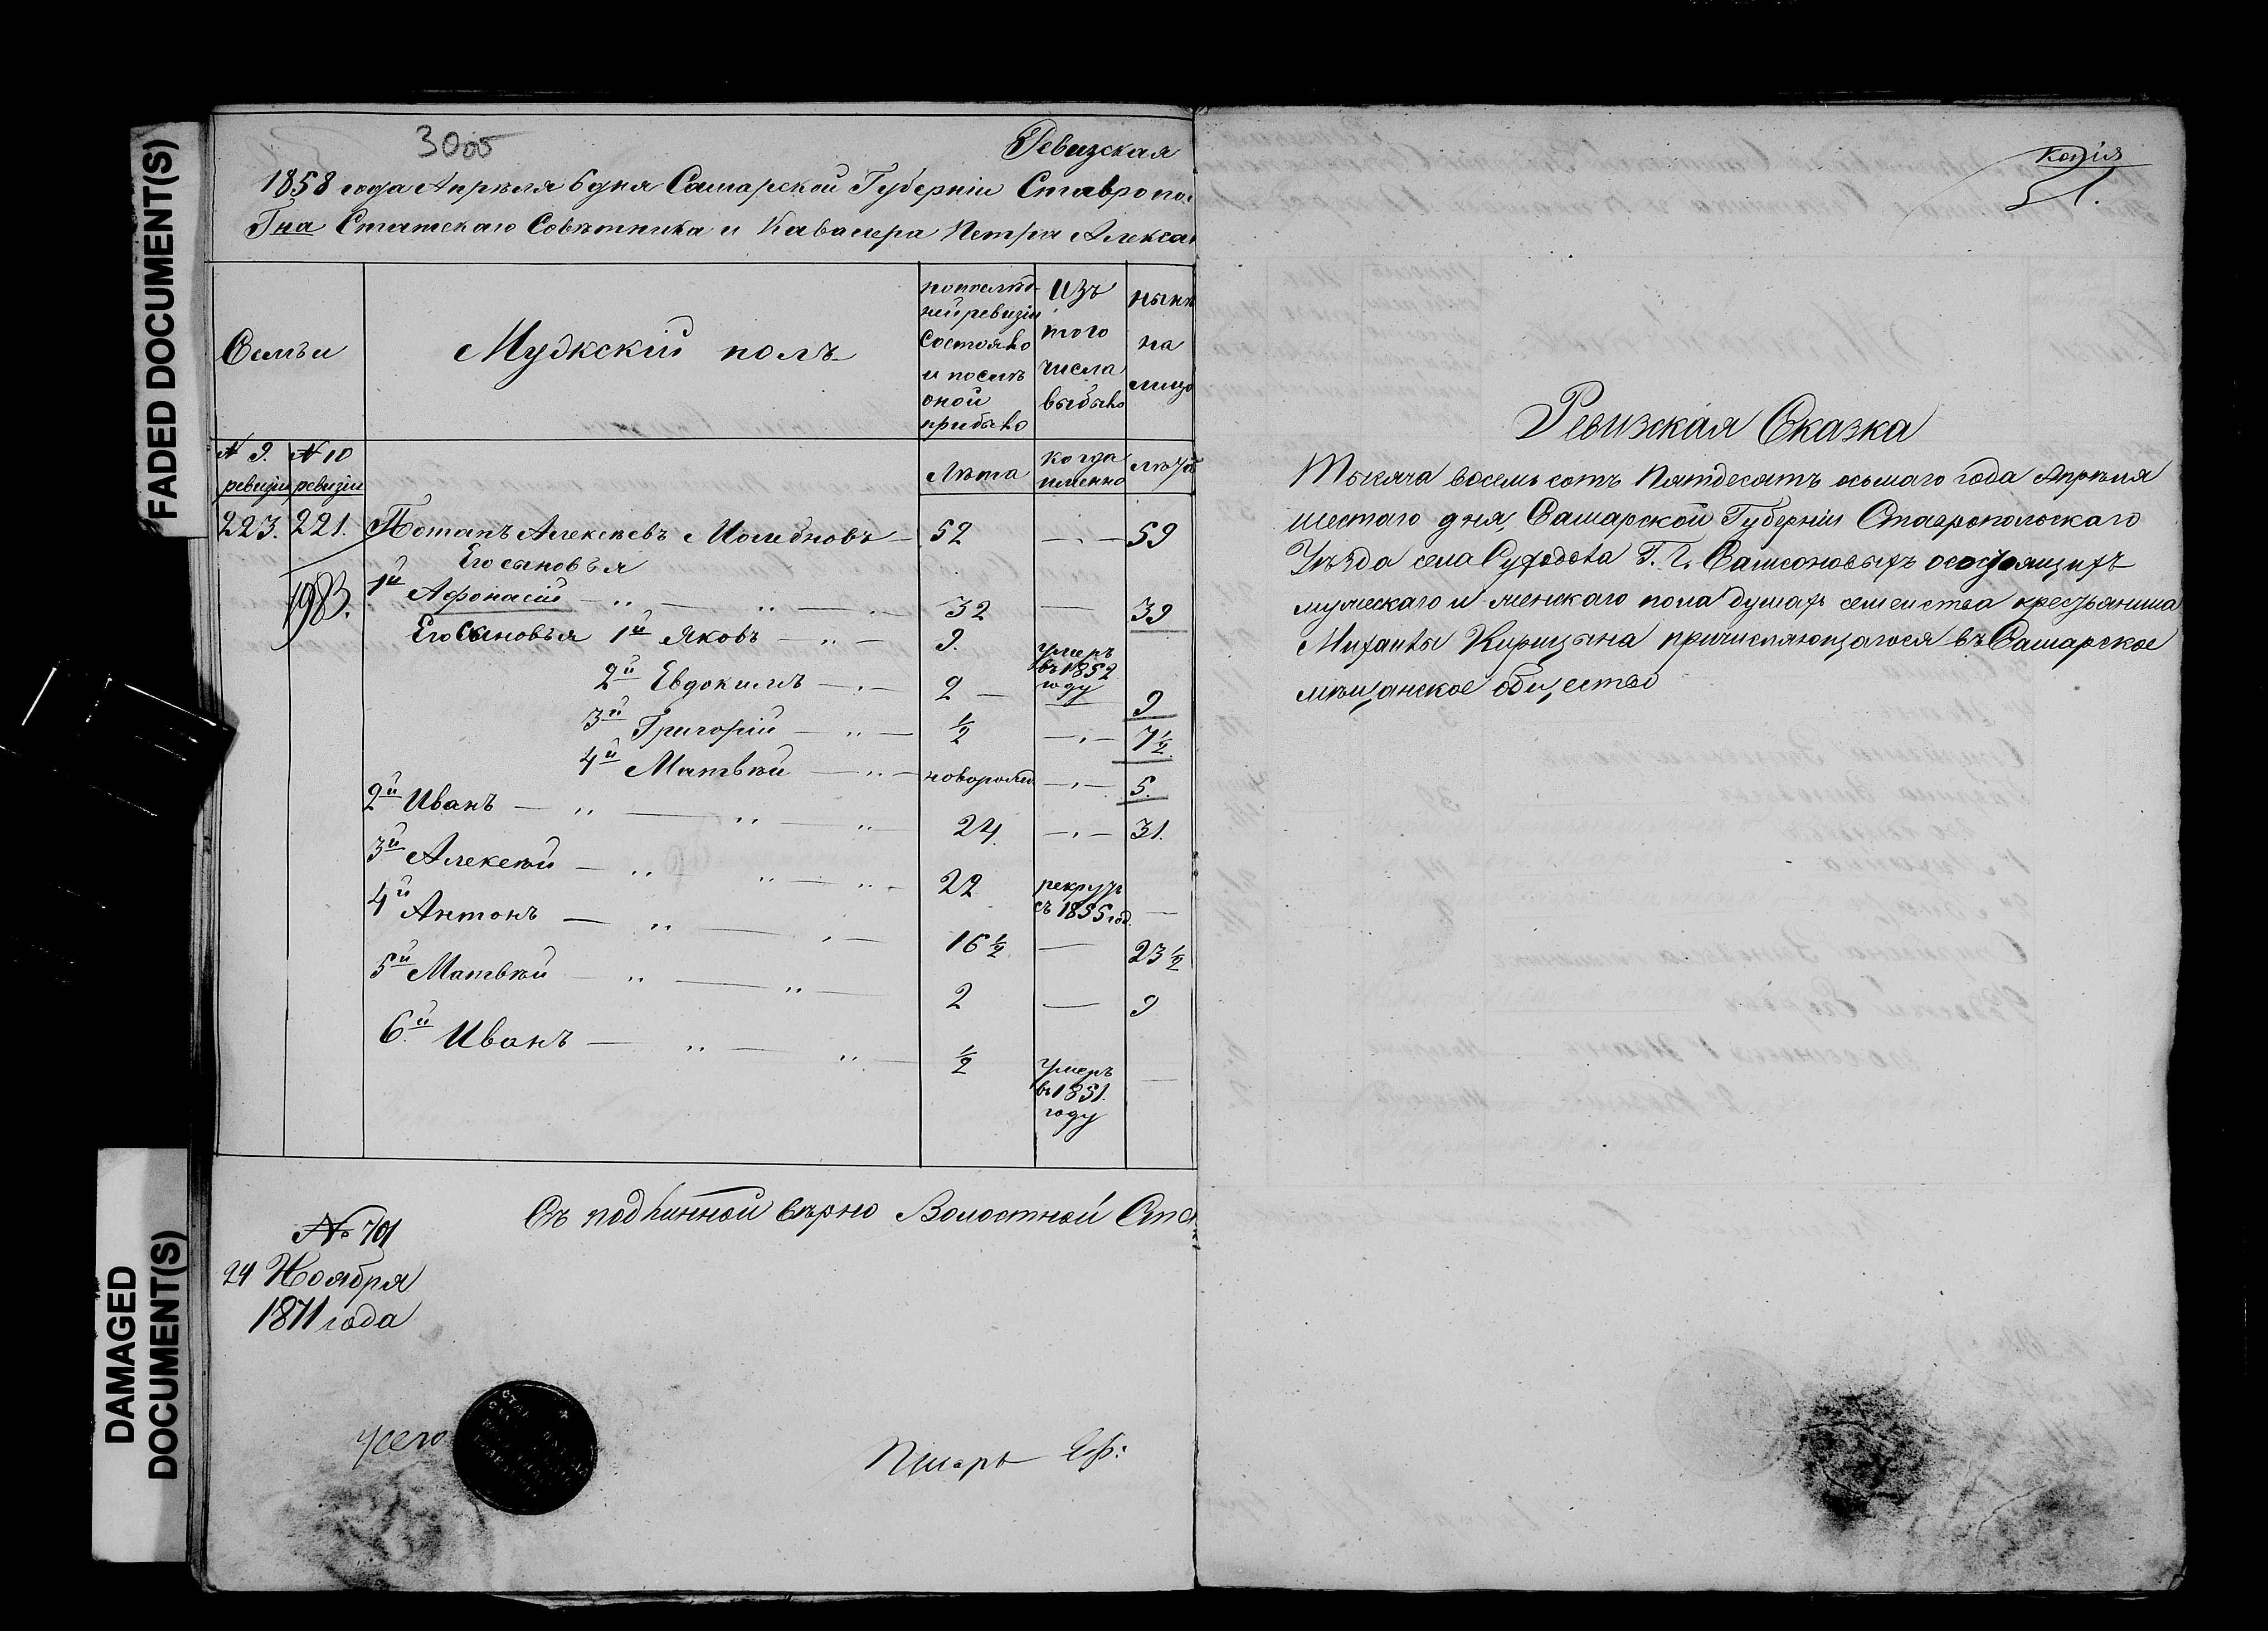 FADED DOCUMENT(S)
DAMAGED DOCUMENT(S)
3000
Ревизская
1858 года Апрѣля 6 дня Самарской Губерніи Ставропо
Гна Статскаго Совѣтника и Кавалера Петра Алекса
Семьи
Мужскій полъ
по послѣд-
ней ревизіи
состояло
и послѣ
оной
прибыло
изъ
того
числа
выбыло
нынѣ
на
лицо
№ 9. ревизіи
№ 10 ревизіи
Лѣта
когда именно
лѣта
223. 221. Потапъ Алексѣевъ 52 59
1983.
Его сыновья
1й Афонасій 32 39
Его Сыновья 1й Яковъ 9. умеръ въ 1852 году
2й Евдокимъ 2 9
3й Григорій ½ 7½
4й Матвѣй новорожд 5.
2й Иванъ 24. 31.
3й Алексѣй 22 рекрутъ съ 1855 год.
4й Антонъ 16½ 23½
5й Матвѣй 2 9
6й Иванъ ½ умеръ въ 1851. году
Съ подлинной вѣрно Волостной Ста
№ 701
24 Ноября
1871 года
Писарь Еф:
Копія
51.
Ревизская Сказка
Тысяча восемь сотъ Пятдесятъ осьмаго года Апрѣля
шестаго дня, Самарской Губерніи Ставропольскаго
Уѣзда села Г. Г. Самсоновыхъ о состоящихъ
мужескаго и женскаго пола душахъ семейства крестьянина
Михаила Кирицына причисляющагося въ Самарское
мѣщанское общество